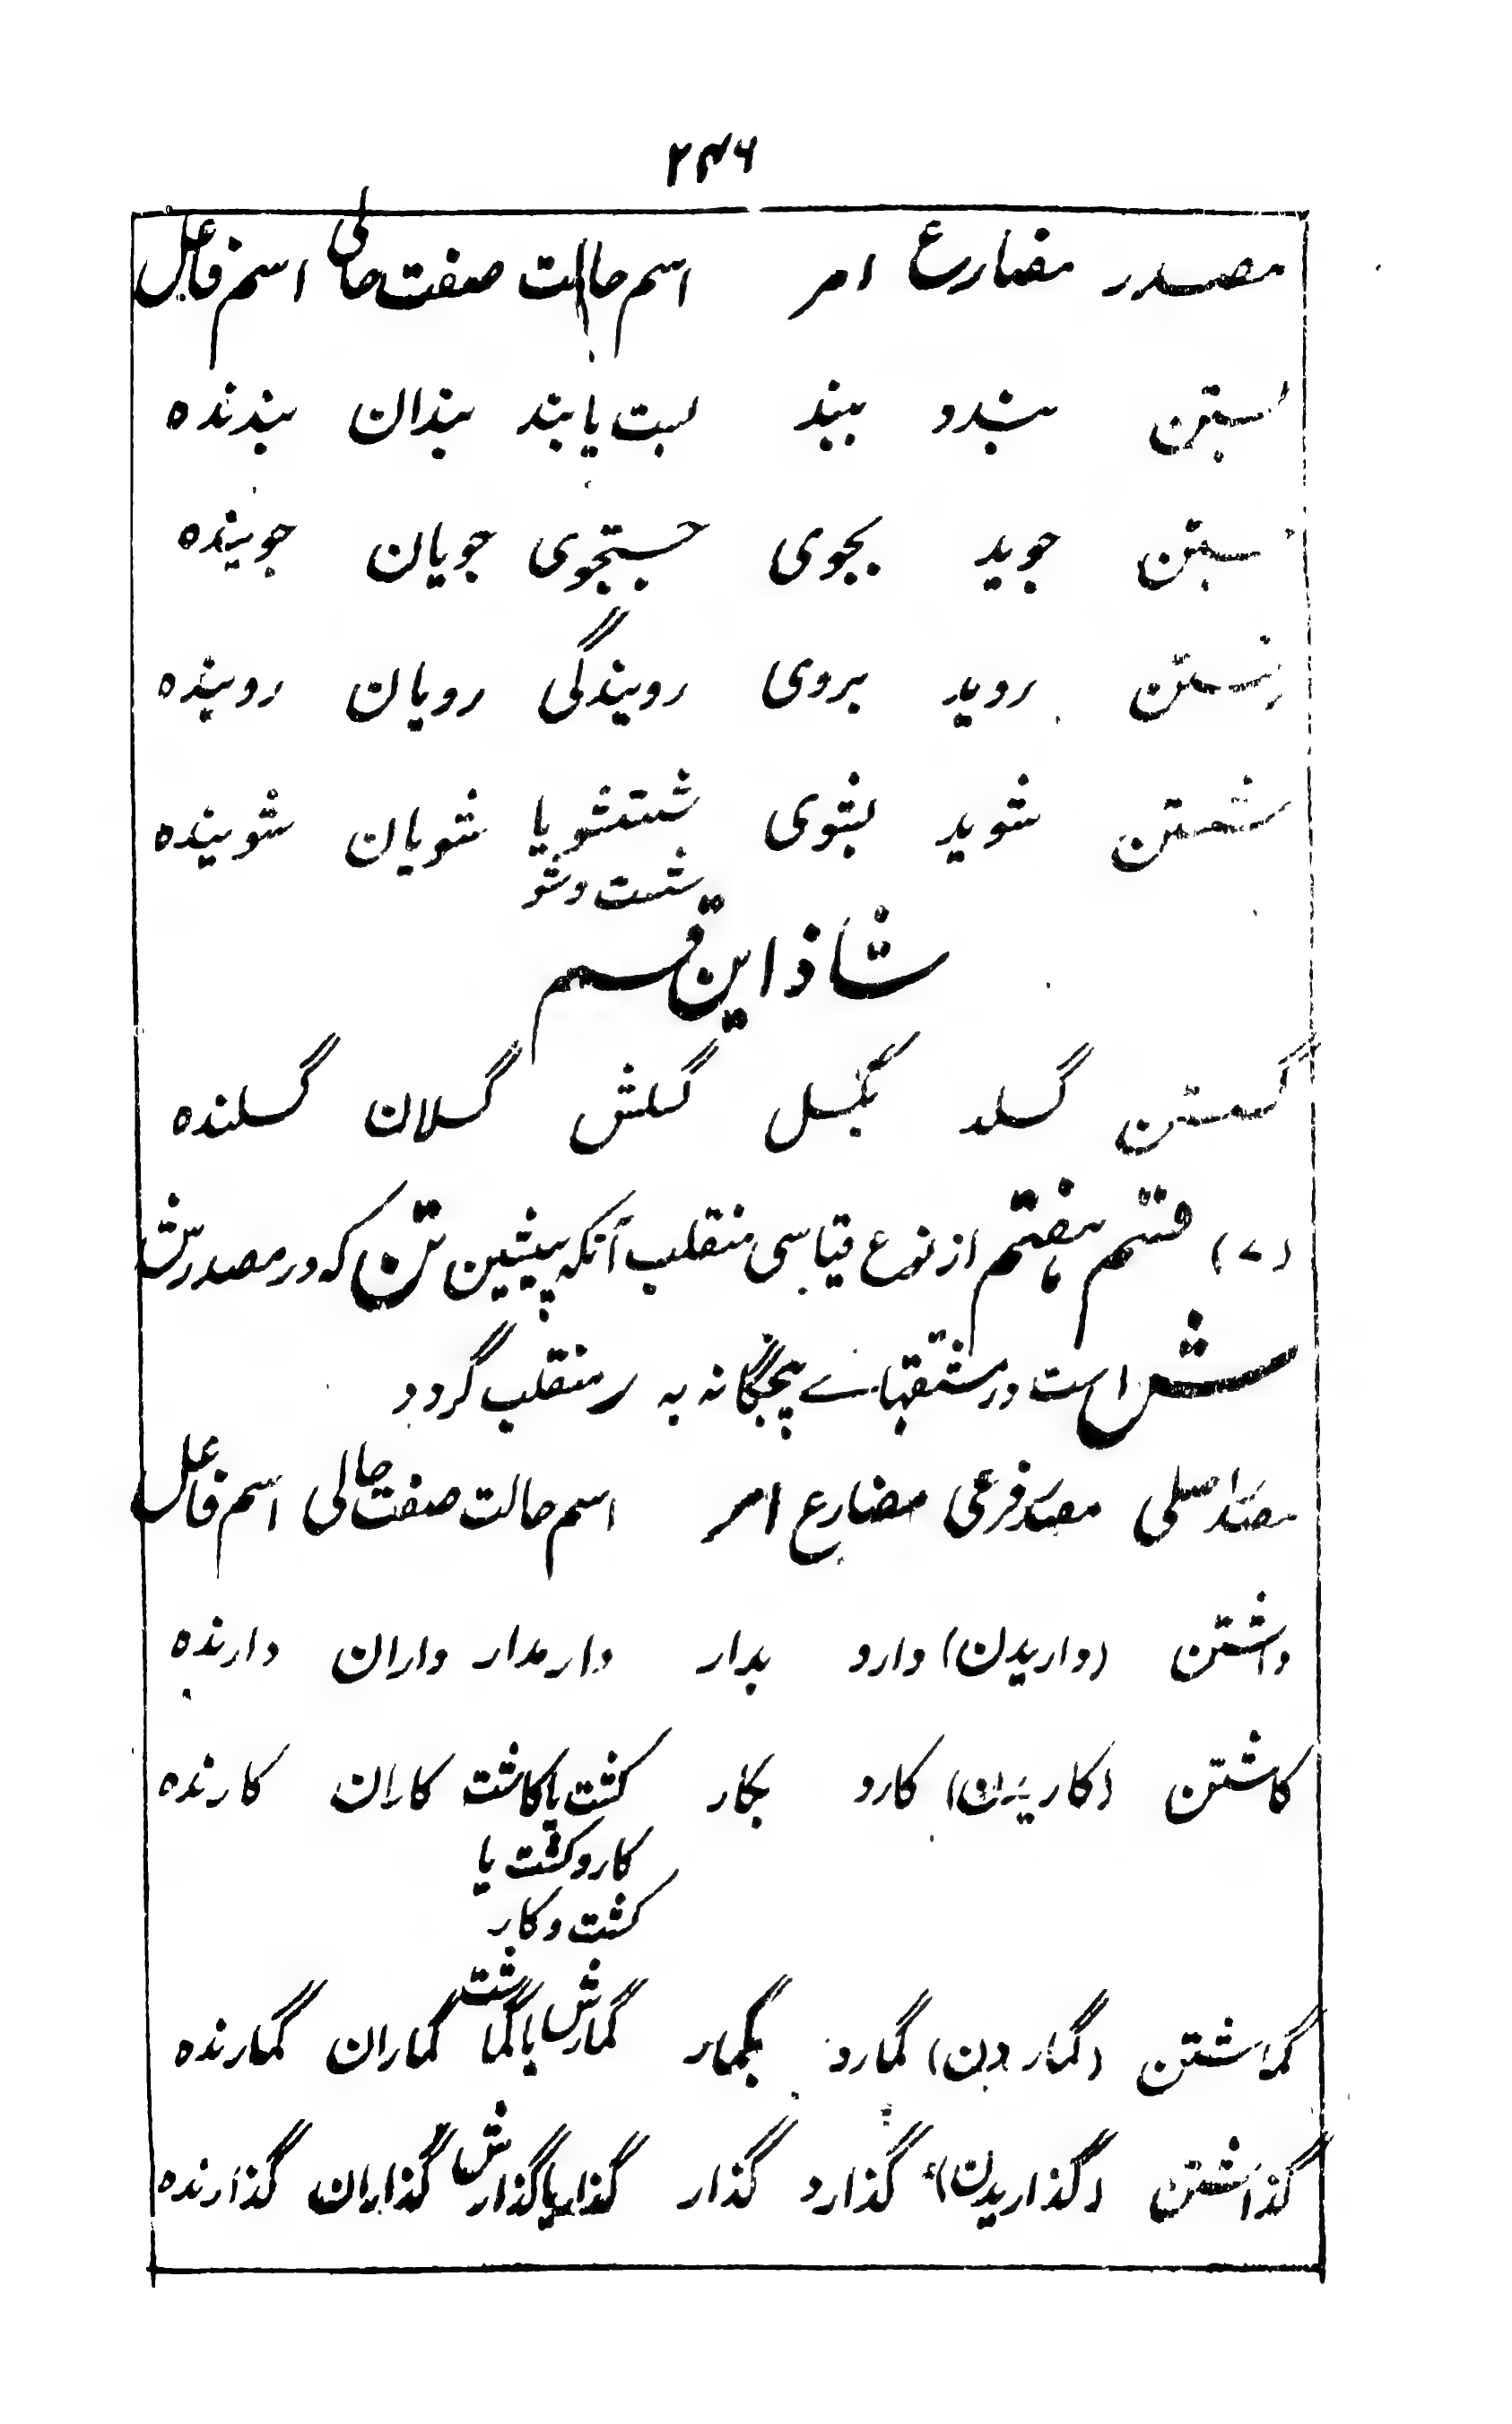 ۲۴۶
مصدر مضارع امر اسم حالت صفت حالی اسم فاعل
بستن بندد ببند بست یا بند بندان بندنده
جستن جوید بجوی جستجوی جویان جوینده
رستن روید بروی رویندگی رویان روینده
شستن شوید بشوی شستشو یا شویان شوینده
شست و شو
شاذ این قسم
گسستن گسلد بگسل گسلش گسلان گسلنده
(۷) قسم هفتم از نوع قیاسی منقلب آنکه پیشین تن که در مصدرش
ش است در مشتقهاے پنجگانه به ر منقلب گردد
مصدر اصلی مصدر فرعی مضارع امر اسم حالت صفت حالی اسم فاعل
داشتن (داریدن) دارد بدار دارمدار داران دارنده
کاشتن (کاریدن) کارد بکار کشت یا کاشت کاران کارنده
کاروکشت یا
کشت و کار
گماشتن (گماردن) گمارد بگمار گمارش یا گماشت گماران گمارنده
گذاشتن (گذاریدن) گذارد گذار گذار یا گذارش گذاران گذارنده